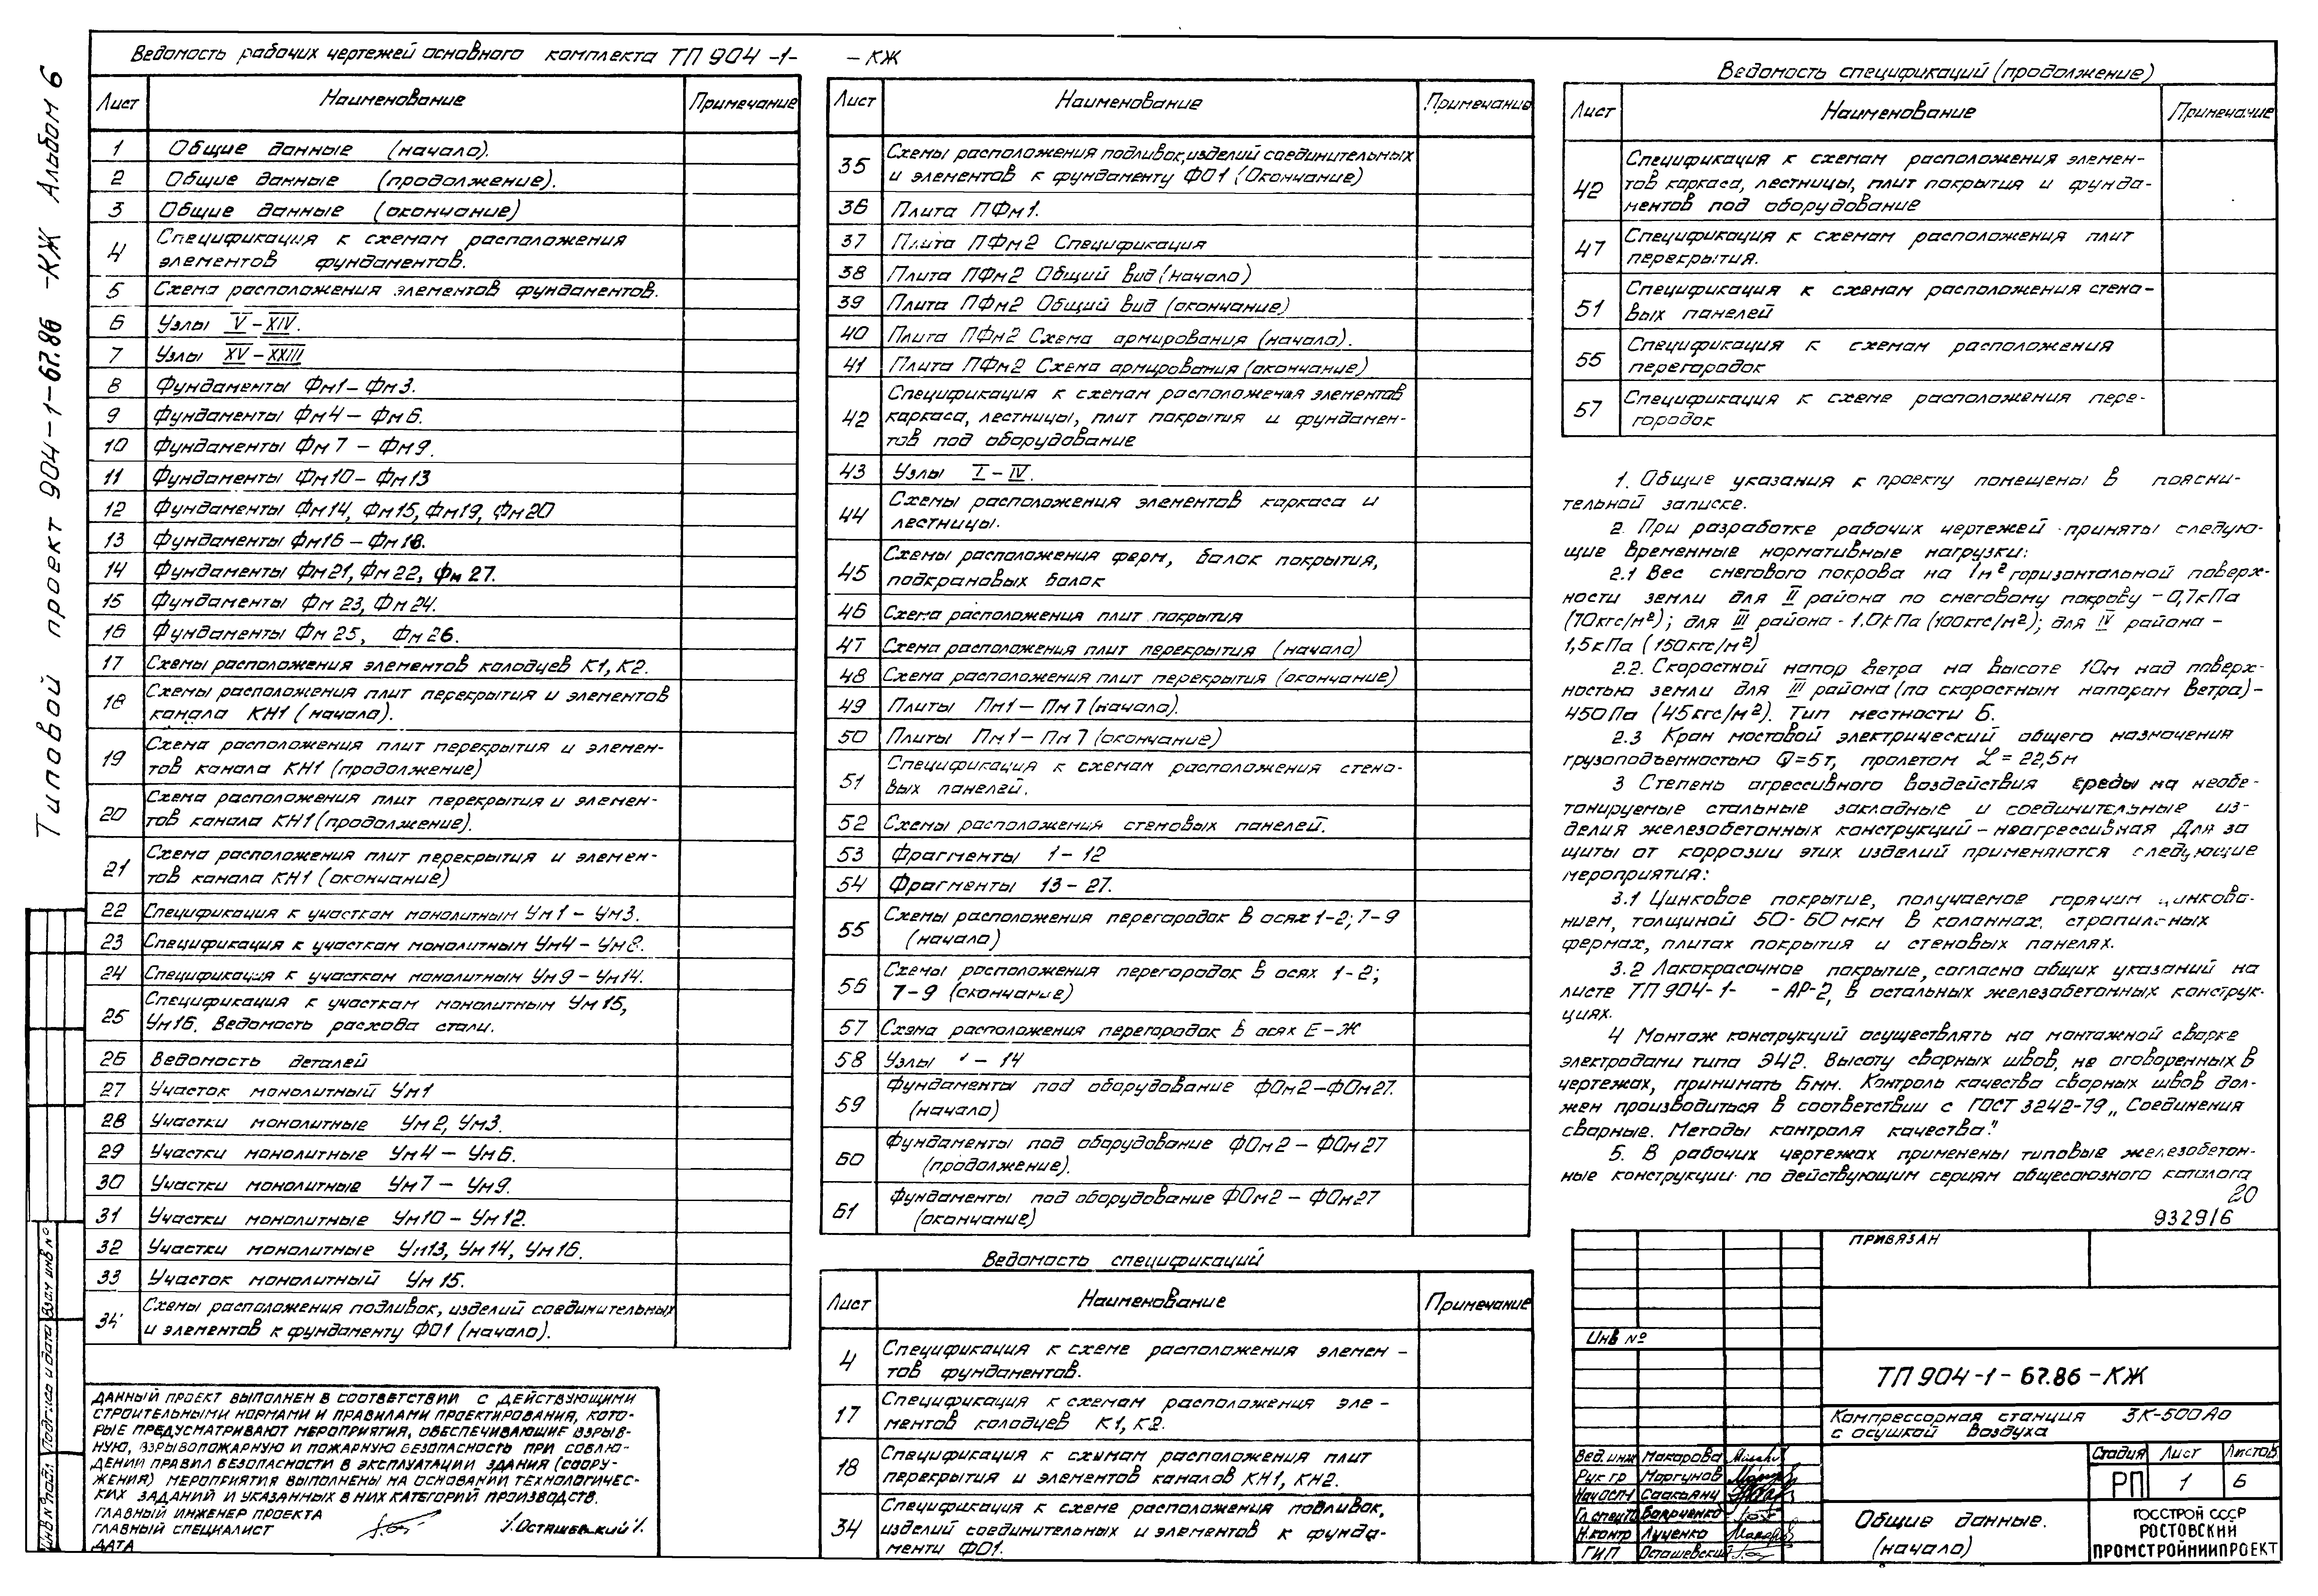 Типовой проект 904-1-67.86 -КЖ Альбом 6
Ведомость рабочих чертежей основного комплекта ТП 904 -1- - КЖ
Лист Наименование Примечание
1 Общие данные (начало).
2 Общие данные (продолжение).
3 Общие данные (окончание)
4 Спецификация к схемам расположения
элементов фундаментов.
5 Схема расположения элементов фундаментов.
6 Узлы V – XIV.
7 Узлы XV – XXIII
8 Фундаменты Фм1 – Фм3.
9 Фундаменты Фм4 – Фм6.
10 Фундаменты Фм7 – Фм9.
11 Фундаменты Фм10 – Фм13
12 Фундаменты Фм14, Фм15, Фм19, Фм20
13 Фундаменты Фм16 – Фм18.
14 Фундаменты Фм21, Фм22, Фм27.
15 Фундаменты Фм23, Фм24.
16 Фундаменты Фм25, Фм26.
17 Схемы расположения элементов колодцев К1, К2.
18 Схемы расположения плит перекрытия и элементов
канала КН1 (начало).
19 Схема расположения плит перекрытия и элемен-
тов канала КН1 (продолжение)
20 Схема расположения плит перекрытия и элемен-
тов канала КН1 (продолжение).
21 Схема расположения плит перекрытия и элемен-
тов канала КН1 (окончание)
22 Спецификация к участкам монолитным Ум1 – Ум3.
23 Спецификация к участкам монолитным Ум4 – Ум8.
24 Спецификация к участкам монолитным Ум9 – Ум14.
25 Спецификация к участкам монолитным Ум15,
Ум16. Ведомость расхода стали.
26 Ведомость деталей
27 Участок монолитный Ум1
28 Участки монолитные Ум2, Ум3.
29 Участки монолитные Ум4 – Ум6.
30 Участки монолитные Ум7 – Ум9.
31 Участки монолитные Ум10 – Ум12.
32 Участки монолитные Ум13, Ум14, Ум16.
33 Участок монолитный Ум15.
34 Схемы расположения подливок, изделий соединительных
и элементов к фундаменту ФО1 (начало).
ДАННЫЙ ПРОЕКТ ВЫПОЛНЕН В СООТВЕТСТВИИ С ДЕЙСТВУЮЩИМИ
СТРОИТЕЛЬНЫМИ НОРМАМИ И ПРАВИЛАМИ ПРОЕКТИРОВАНИЯ, КОТО-
РЫЕ ПРЕДУСМАТРИВАЮТ МЕРОПРИЯТИЯ, ОБЕСПЕЧИВАЮЩИЕ ВЗРЫВ-
НУЮ, ВЗРЫВОПОЖАРНУЮ И ПОЖАРНУЮ БЕЗОПАСНОСТЬ ПРИ СОБЛЮ-
ДЕНИИ ПРАВИЛ БЕЗОПАСНОСТИ В ЭКСПЛУАТАЦИИ ЗДАНИЯ (СООРУ-
ЖЕНИЯ) МЕРОПРИЯТИЯ ВЫПОЛНЕНЫ НА ОСНОВАНИИ ТЕХНОЛОГИЧЕС-
КИХ ЗАДАНИЙ И УКАЗАННЫХ В НИХ КАТЕГОРИЙ ПРОИЗВОДСТВ.
ГЛАВНЫЙ ИНЖЕНЕР ПРОЕКТА
ГЛАВНЫЙ СПЕЦИАЛИСТ /.ОСТАШЕВСКИЙ/.
ДАТА
Инв № подл. Подпись и дата Взам инв №
Лист Наименование Примечание
35 Схемы расположения подливок, изделий соединительных
и элементов к фундаменту ФО1 (Окончание)
36 Плита ПФм1.
37 Плита ПФм2 Спецификация
38 Плита ПФм2 Общий вид (начало)
39 Плита ПФм2 Общий вид (окончание)
40 Плита ПФм2 Схема армирования (начало).
41 Плита ПФм2 Схема армирования (окончание)
42 Спецификация к схемам расположения элементов
каркаса, лестницы, плит покрытия и фундамен-
тов под оборудование
43 Узлы I – IV.
44 Схемы расположения элементов каркаса и
лестницы.
45 Схемы расположения ферм, балок покрытия,
подкрановых балок
46 Схема расположения плит покрытия
47 Схема расположения плит перекрытия (начало)
48 Схема расположения плит перекрытия (окончание)
49 Плиты Пм1 – Пм7 (начало).
50 Плиты Пм1 – Пм7 (окончание)
51 Спецификация к схемам расположения стено-
вых панелей.
52 Схемы расположения стеновых панелей.
53 Фрагменты 1 – 12
54 Фрагменты 13 – 27.
55 Схемы расположения перегородок в осях 1-2; 7-9
(начало)
56 Схемы расположения перегородок в осях 1-2;
7-9 (окончание)
57 Схема расположения перегородок в осях Е-Ж
58 Узлы – 14
59 Фундаменты под оборудование ФОм2 – ФОм27.
(начало)
60 Фундаменты под оборудование ФОм2 – ФОм27
(продолжение).
61 Фундаменты под оборудование ФОм2 – ФОм27
(окончание)
Ведомость спецификаций
Лист Наименование Примечание
4 Спецификация к схеме расположения элемен-
тов фундаментов.
17 Спецификация к схемам расположения эле-
ментов колодцев К1, К2.
18 Спецификация к схемам расположения плит
перекрытия и элементов каналов КН1, КН2.
34 Спецификация к схеме расположения подливок,
изделий соединительных и элементов к фунда-
менти ФО1.
Ведомость спецификаций (продолжение)
Лист Наименование Примечание
42 Спецификация к схемам расположения элемен-
тов каркаса, лестницы, плит покрытия и фунда-
ментов под оборудование
47 Спецификация к схемам расположения плит
перекрытия.
51 Спецификация к схемам расположения стено-
вых панелей
55 Спецификация к схемам расположения
перегородок
57 Спецификация к схеме расположения пере-
городок
1. Общие указания к проекту помещены в поясни-
тельной записке.
2. При разработке рабочих чертежей приняты следую-
щие временные нормативные нагрузки:
2.1 Вес снегового покрова на 1м² горизонтальной поверх-
ности земли для II района по снеговому покрову – 0,7кПа
(70кгс/м²); для III района - 1.0кПа (100кгс/м²); для IV района –
1,5кПа (150кгс/м²)
2.2. Скоростной напор ветра на высоте 10м над поверх-
ностью земли для III района (по скоростным напорам ветра) –
450Па (45кгс/м²). Тип местности Б.
2.3 Кран мостовой электрический общего назначения
грузоподъемностью Q=5т, пролетом L = 22,5м
3 Степень агрессивного воздействия среды на необе-
тонируемые стальные закладные и соединительные из-
делия железобетонных конструкций – неагрессивная Для за
щиты от коррозии этих изделий применяются следующие
мероприятия:
3.1 Цинковое покрытие, получаемое горячим цинкова-
нием, толщиной 50-60 мкм в колоннах, стропильных
фермах, плитах покрытия и стеновых панелях.
3.2 Лакокрасочное покрытие, согласно общих указаний на
листе ТП 904-1- -АР-2, в остальных железобетонных конструк-
циях.
4 Монтаж конструкций осуществлять на монтажной сварке
электродами типа Э42. Высоту сварных швов, не оговоренных в
чертежах, принимать 6мм. Контроль качества сварных швов дол-
жен производиться в соответствии с ГОСТ 3242-79 „Соединения
сварные. Методы контроля качества."
5. В рабочих чертежах применены типовые железобетон-
ные конструкции по действующим сериям общесоюзного каталога
20
9329/6
ПРИВЯЗАН
Инв №
ТП 904-1-67.86-КЖ
Компрессорная станция 3К-500Ао
с осушкой воздуха
Вед. инж Макарова
Рук гр Моргунов
Нач ОСП-1 Саакьянц
Гл. спец Боярченко
Н.контр Луценко
ГИП Осташевский
Стадия Лист Листов
РП 1 6
Общие данные.
(начало)
ГОССТРОЙ СССР
РОСТОВСКИЙ
ПРОМСТРОЙНИИПРОЕКТ